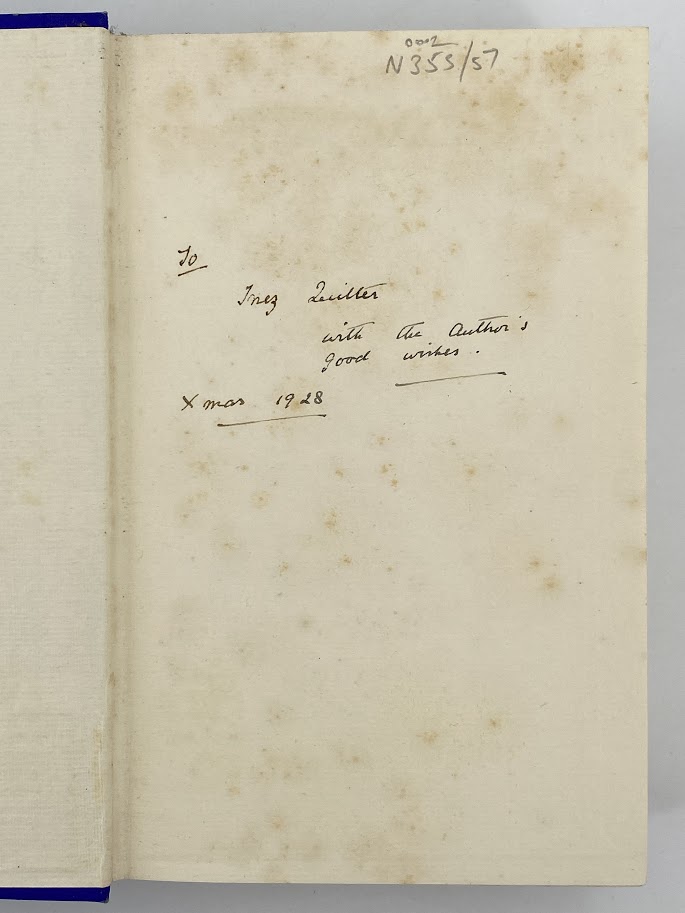 0002
N355/57
To
Inez Quilter
with the Author's
good wishes.
Xmas 1928